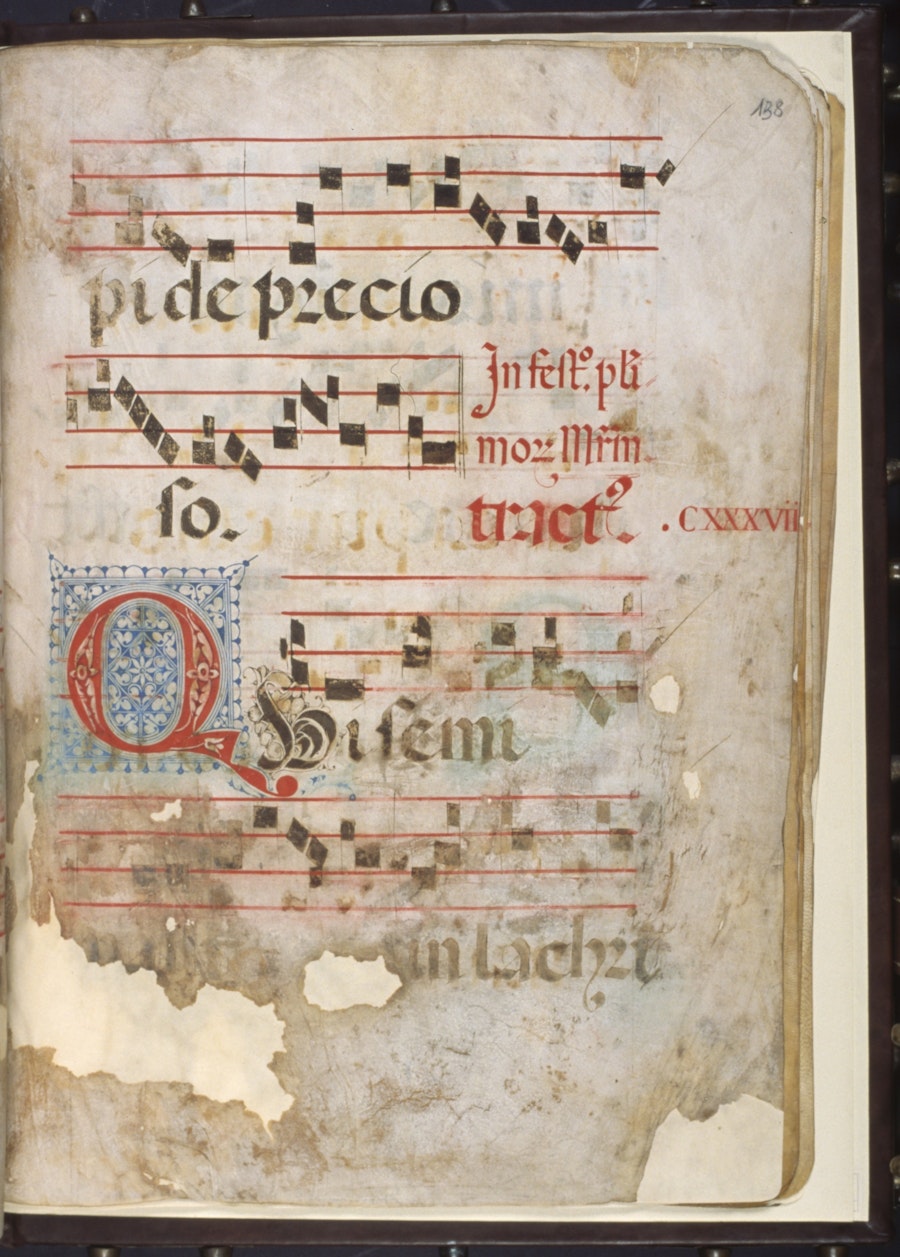 138
pi de precio
In festo. pli
mor Mrm
so.
tract9. . CXXXVII
QUi semi
in lachri